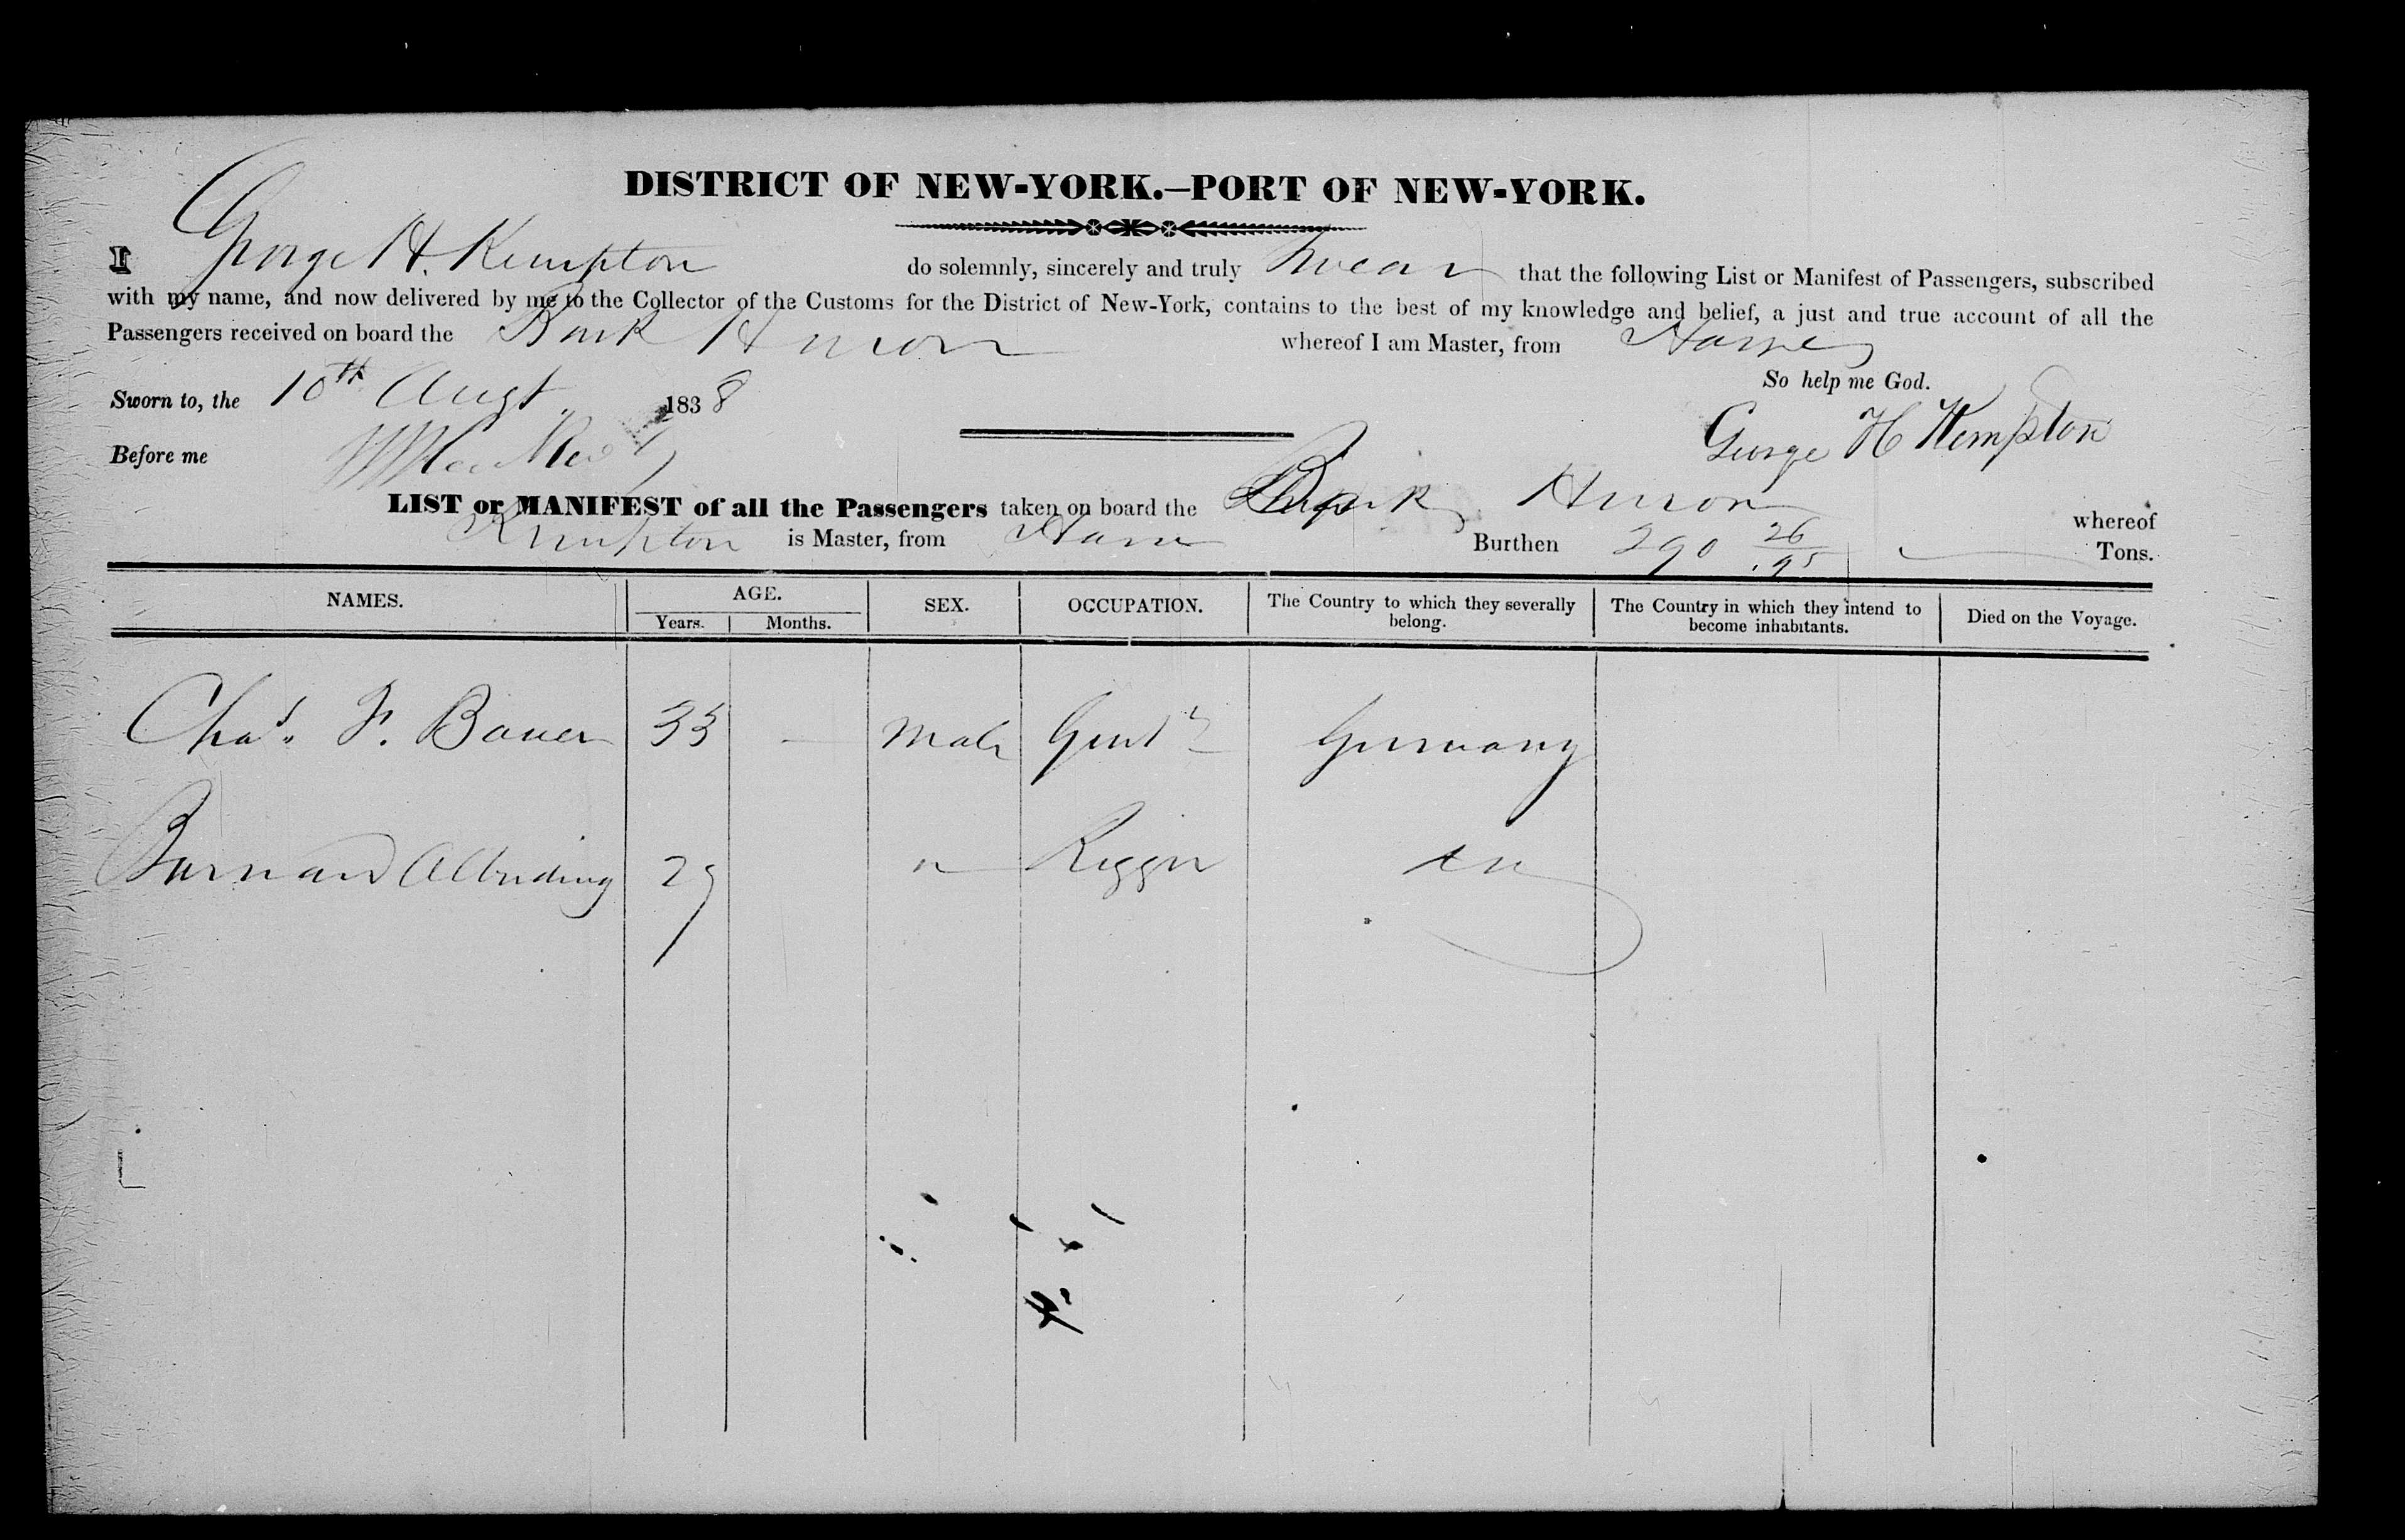 DISTRICT OF NEW-YORK.—PORT OF NEW-YORK.
I George H. Kempton do solemnly, sincerely and truly swear that the following List or Manifest of Passengers, subscribed
with my name, and now delivered by me to the Collector of the Customs for the District of New-York, contains to the best of my knowledge and belief, a just and true account of all the
Passengers received on board the Bark Huron whereof I am Master, from
So help me God.
Sworn to, the 10th Augt. 1838
George H Kempton
Before me
LIST or MANIFEST of all the Passengers taken on board the Bark Huron whereof
Kempton is Master, from Burthen 290 26/95 Tons.
NAMES. AGE. SEX. OCCUPATION. The Country to which they severally belong. The Country in which they intend to become inhabitants. Died on the Voyage.
Years. Months.
Chas. F. Bauer 33 — Male Gent Germany
29 " Rigger